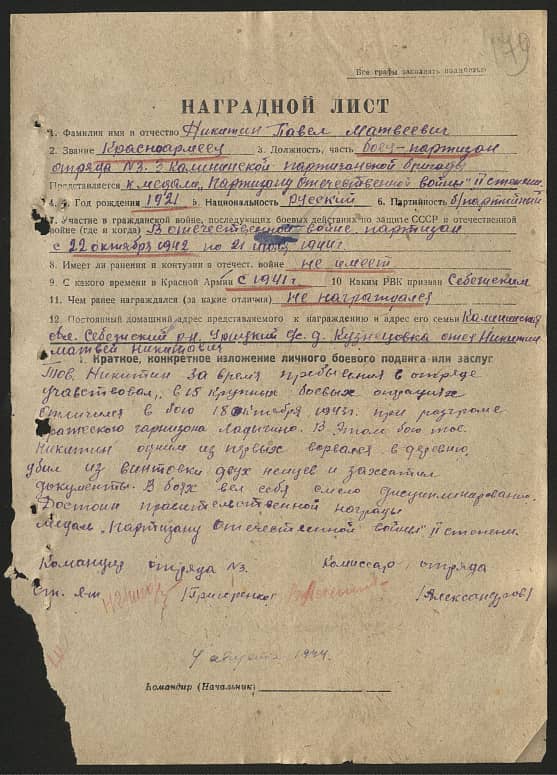 179
Все графы заполнять полностью
НАГРАДНОЙ ЛИСТ
1. Фамилия имя и отчество Никитин Павел Матвеевич
2. Звание Красноармеец 3. Должность, часть боец-партизан
отряда №3. 3 Калининской партизанской бригады
Представляется к медали „Партизану Отечественной войны" II степени
4. 5. Год рождения 1921 5. Национальность русский 6. Партийность б/партийный
7. Участие в гражданской войне, последующих боевых действиях по защите СССР и отечественной
войне (где и когда) В отечественной войне партизан
с 22 октября 1942 по 21 июля 1944 г.
8. Имеет ли ранения и контузии в отечест. войне не имеет
9. С какого времени в Красной Армии с 1941 г 10 Каким РВК призван Себежским
11. Чем ранее награждался (за какие отличия) Не награждался
12. Постоянный домашний адрес представляемого к награждению и адрес его семьи Калининская
обл. Себежский р-н, Урицкий с/с. д. Кузнецовка отец Никитин
Матвей Никитович
1. Краткое, конкретное изложение личного боевого подвига или заслуг
Тов. Никитин за время пребывения в отряде
учавствовал, в 15 крупных боевых операциях
отличился в бою 18 октября 1943 г. при разгроме
вражеского гарнизона В этом бою тов.
Никитин одним из первых ворвался в деревню,
убил из винтовки двух немцев и захватил
документы. В боях вел себя смело дисциплинировано.
Достоин правительственной награды
медаль „Партизану отечественной войны" II степени.
Командир отряда №3. Комиссар отряда
ст. л-т /Григоренко/ /Александров/
4 августа 1944.
Командир (Начальник)